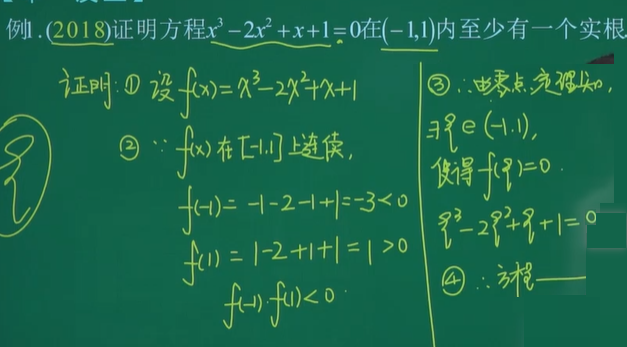 例1.(2018)证明方程x³-2x²+x+1=0在(-1,1)内至少有一个实根.
证明:① 设f(x)=x³-2x²+x+1
② ∵ f(x)在[-1.1]上连续,
f(-1)=-1-2-1+1=-3<0
f(1)=1-2+1+1=1>0
f(-1)·f(1)<0.
③ ∴由零点定理知,
∃ξ∈(-1.1),
使得f(ξ)=0.
ξ³-2ξ²+ξ+1=0
④ ∴方程——
ξ